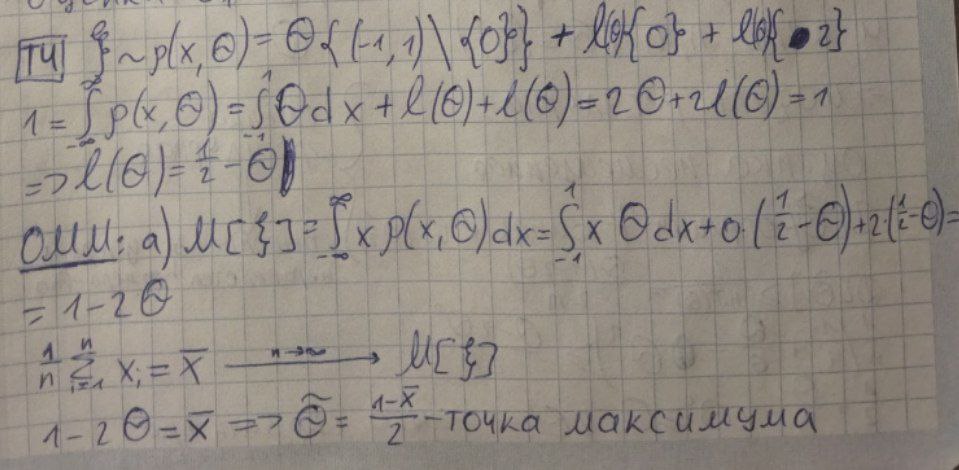 T4 ξ ~ ρ(x, Θ) = Θ{(-1, 1) \ {0}} + l(Θ){0} + l(Θ){2}
1 = ∫_{-∞}^{∞} ρ(x, Θ) = ∫_{-1}^{1} Θ dx + l(Θ) + l(Θ) = 2Θ + 2l(Θ) = 1
=> l(Θ) = 1/2 - Θ
ОММ: a) M[ξ] = ∫_{-∞}^{∞} x ρ(x, Θ) dx = ∫_{-1}^{1} x Θ dx + 0·(1/2 - Θ) + 2·(1/2 - Θ) =
= 1 - 2Θ
1/n Σ_{i=1}^{n} x_i = x̄ —n→∞→ M[ξ]
1 - 2Θ = x̄ => Θ̃ = (1 - x̄)/2 - точка максимума